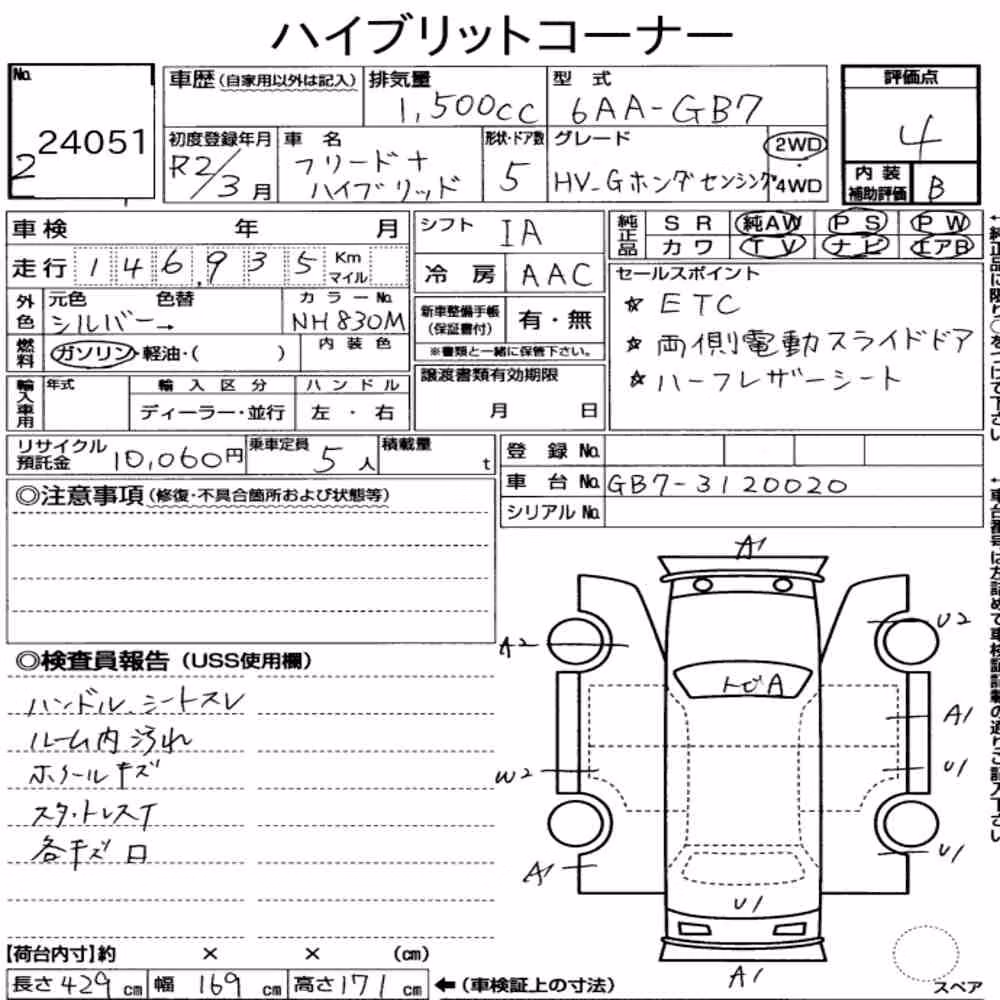 ハイブリットコーナー
No.
2 24051
車歴 (自家用以外は記入)
排気量
1,500cc
型式
6AA-GB7
評価点
4
内装
補助評価
B
初度登録年月
R2/3月
車名
フリード+
ハイブリッド
形状・ドア数
5
グレード
HV_Gホンダセンシング
2WD
・
4WD
車検 年 月
走行 146,935 Km
マイル
外色
元色 色替
シルバー→
カラーNo.
NH830M
燃料
ガソリン・軽油・( )
内装色
輸入車用
年式
輸入区分
ディーラー・並行
ハンドル
左・右
シフト
IA
冷房
AAC
新車整備手帳
(保証書付)
有・無
※書類と一緒に保管下さい。
譲渡書類有効期限
月 日
純正品
SR 純AW PS PW
カワ TV ナビ エアB
セールスポイント
☆ ETC
☆ 両側電動スライドドア
☆ ハーフレザーシート
←純正品に限り○をつけて下さい
リサイクル
預託金
10,060円
乗車定員
5人
積載量
t
登録No.
車台No. GB7-3120020
シリアルNo.
←車台番号は左詰めで車検証記載の通りご記入下さい
◎注意事項(修復・不具合箇所および状態等)
◎検査員報告(USS使用欄)
ハンドル、シートスレ
ルーム内汚れ
ホイールキズ
スタ・トレスT
各キズ凹
A1
A2
U2
トビA
A1
W2
U1
A1
U1
U1
A1
【荷台内寸】約 × × (cm)
長さ429cm 幅169cm 高さ171cm
←(車検証上の寸法)
スペア